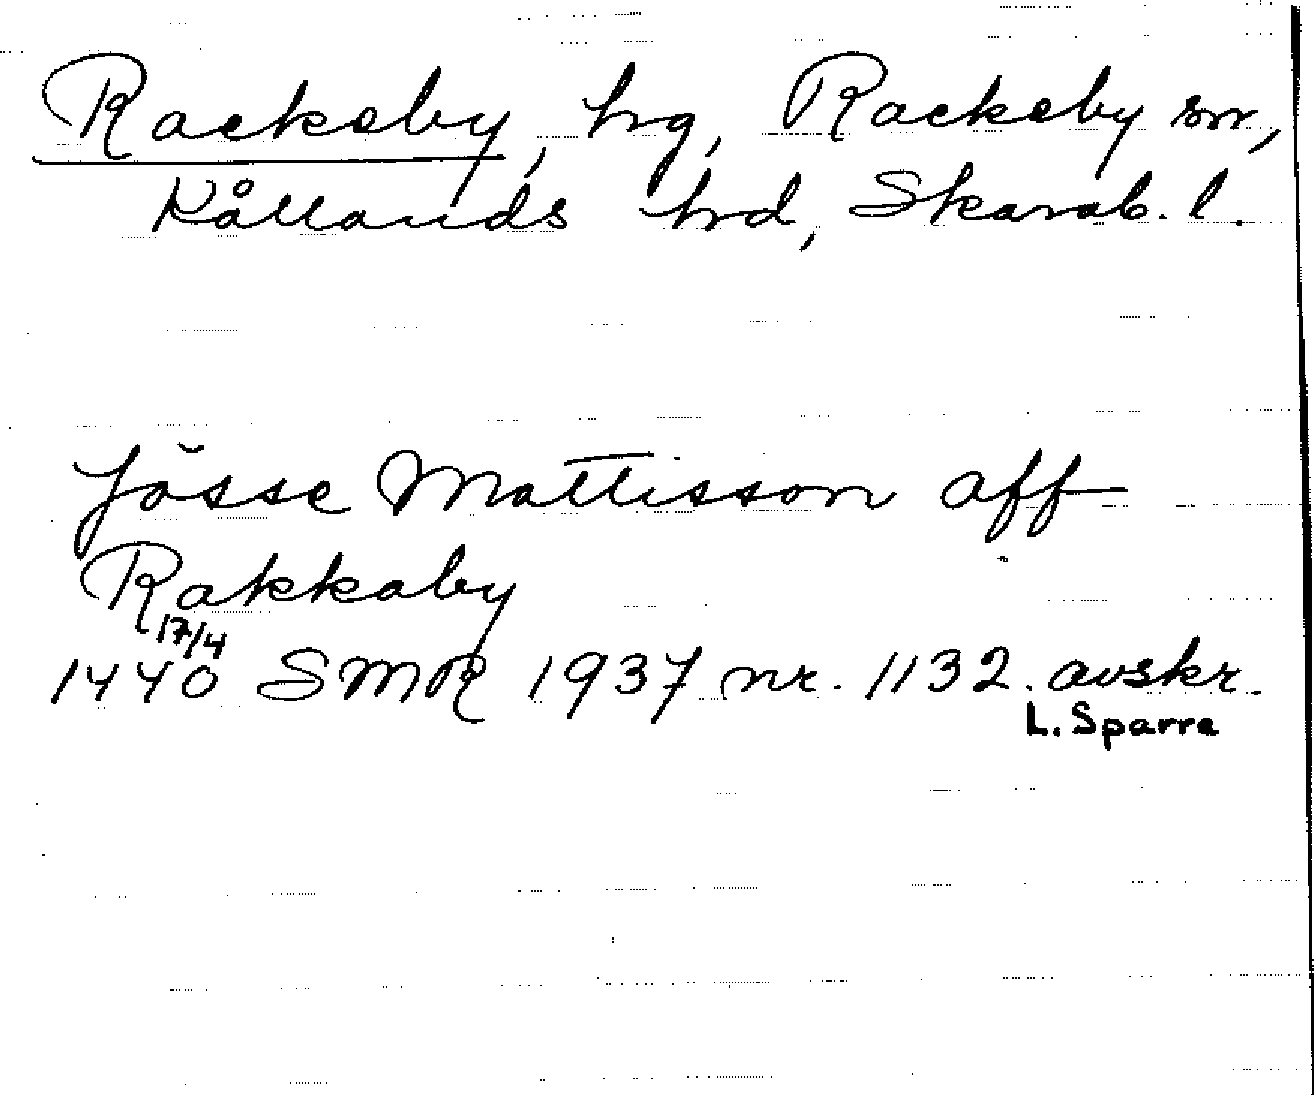 Rackeby, hg, Rackeby sn,
Kållands hd, Skarab. l.
Jösse Mattisson aff
Rakkaby
17/4
1440 SMR 1937 nr. 1132. avskr.
L. Sparre